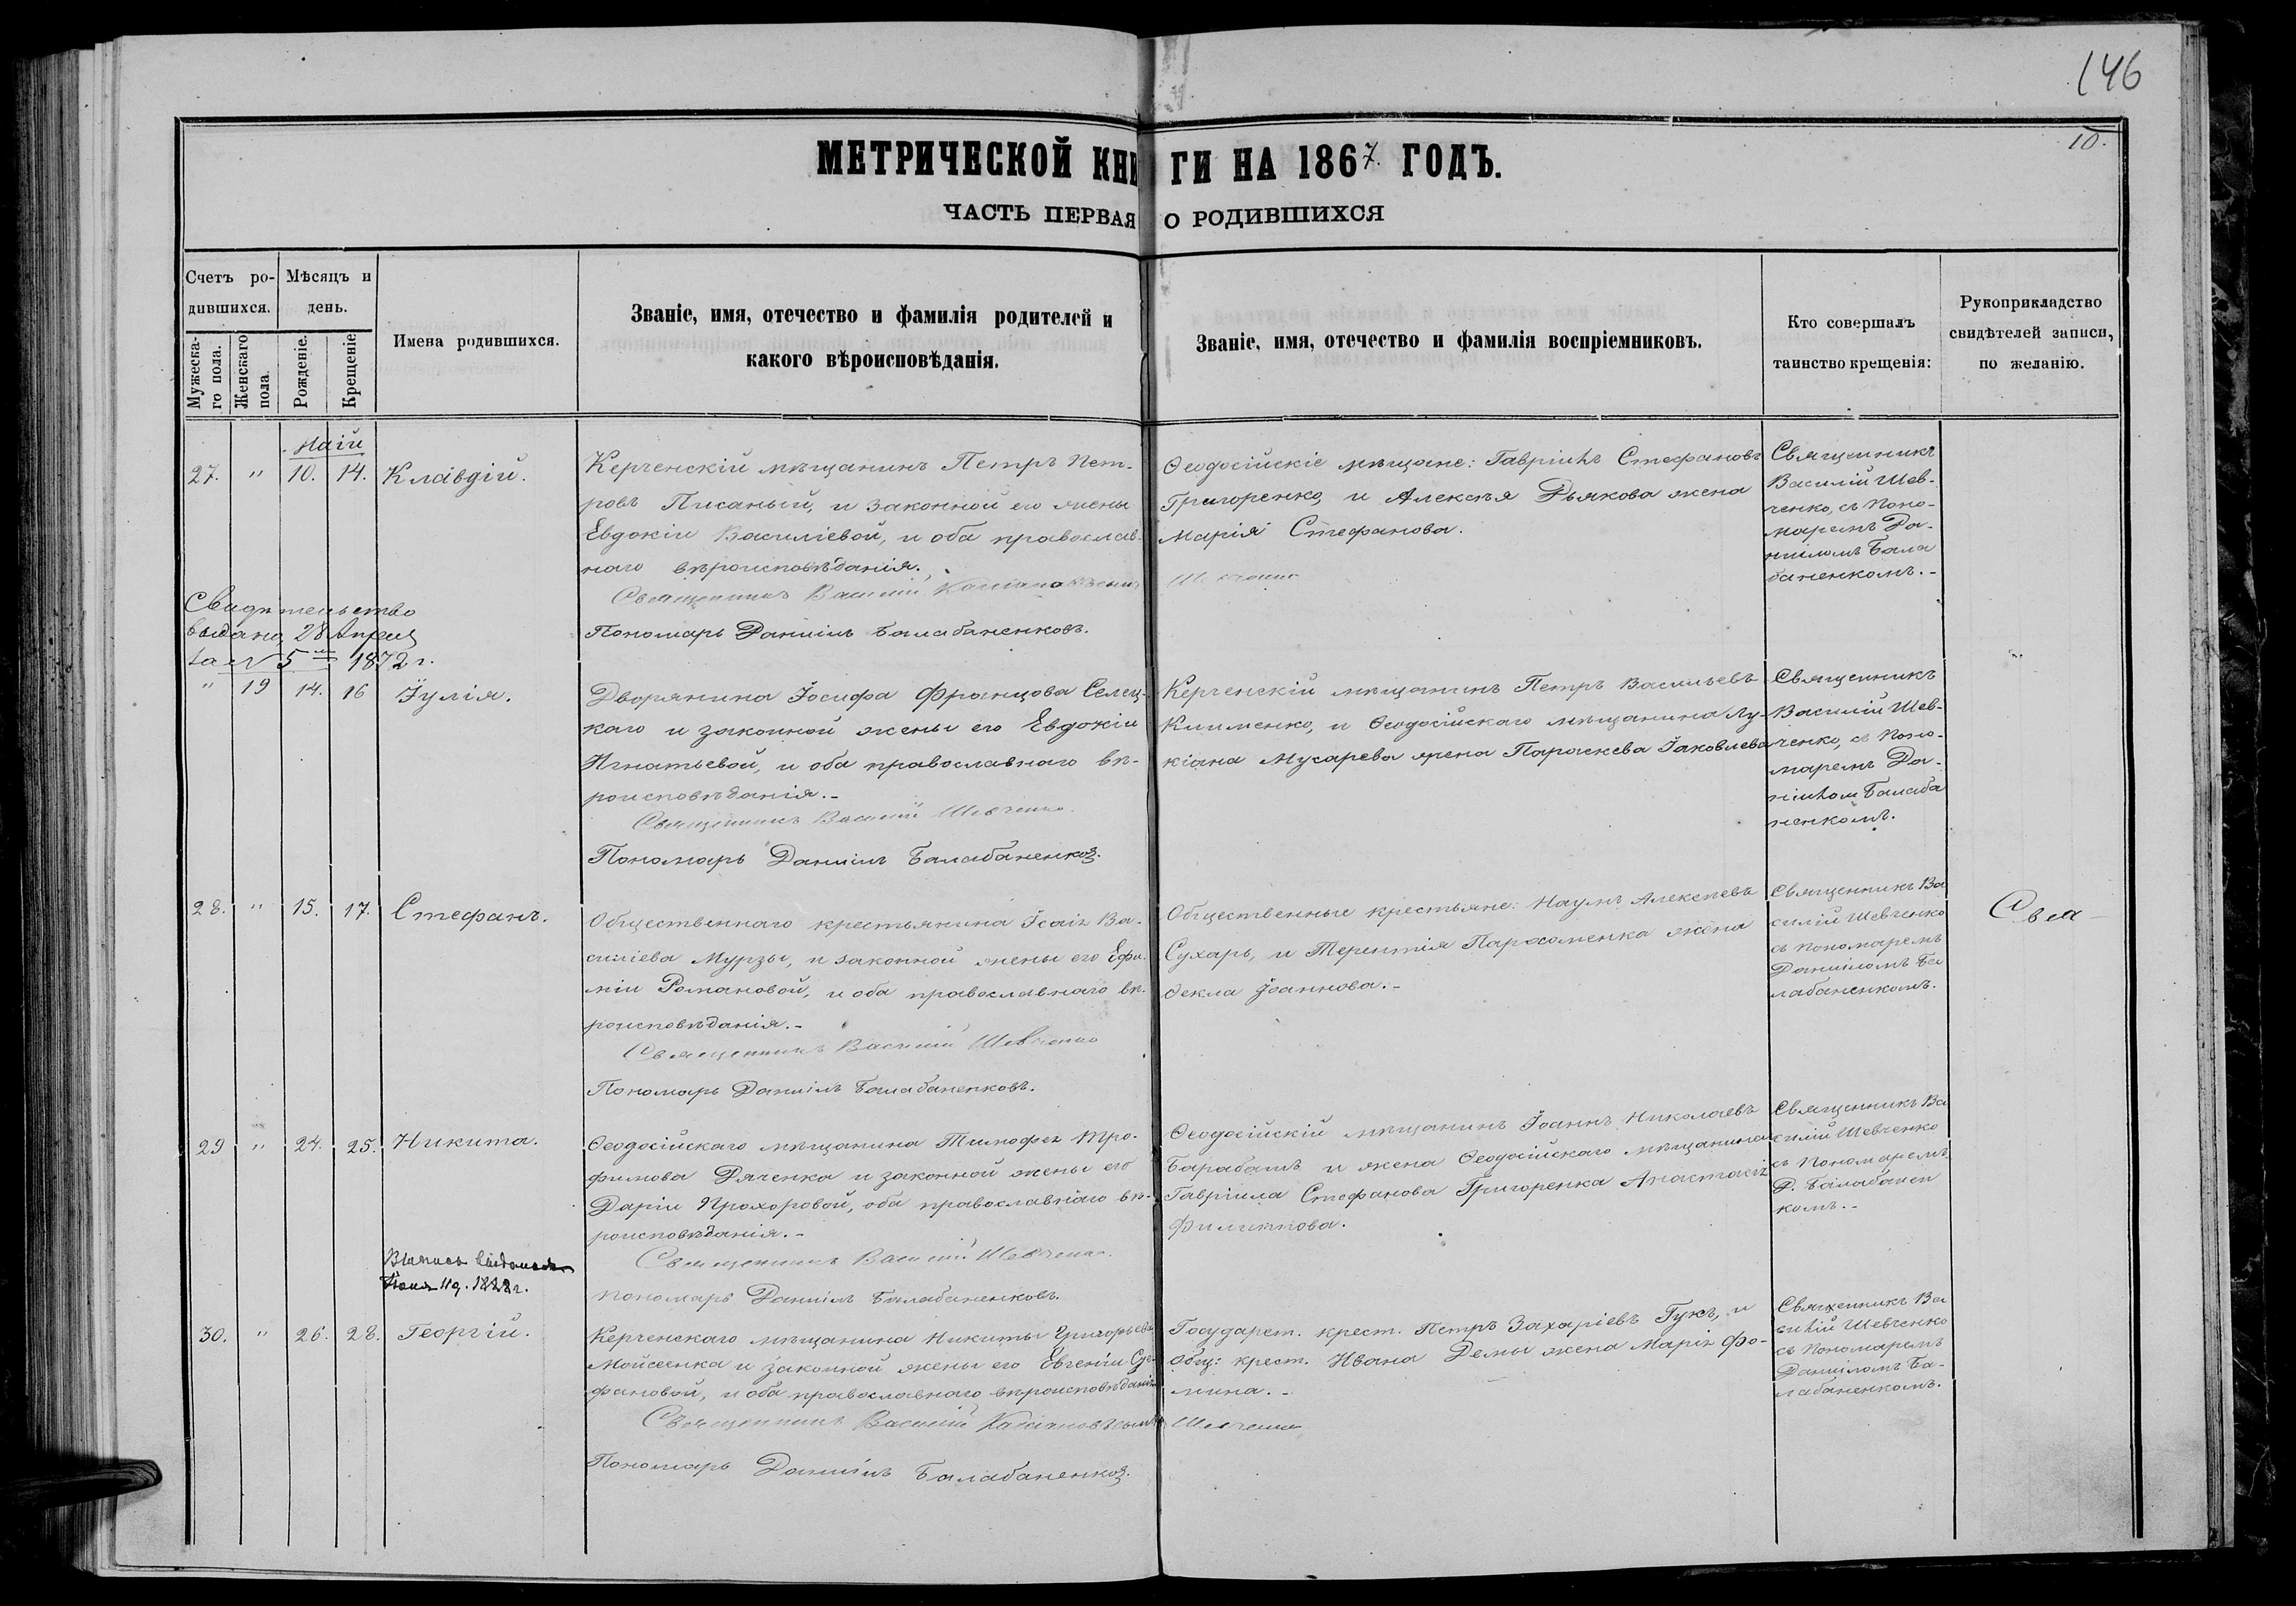 146
10.
МЕТРИЧЕСКОЙ КНИГИ НА 1867. ГОДЪ.
ЧАСТЬ ПЕРВАЯ О РОДИВШИХСЯ
Счетъ ро-
дившихся.
Мужеска-
го пола.
Женскаго
пола.
Мѣсяцъ и
день.
Рожденіе.
Крещеніе
Имена родившихся.
Званіе, имя, отечество и фамилія родителей и
какого вѣроисповѣданія.
Званіе, имя, отечество и фамилія воспріемниковъ.
Кто совершалъ
таинство крещенія:
Рукоприкладство
свидѣтелей записи,
по желанію.
Маій
27. " 10. 14. Клавдій.
Керченскій мѣщанинъ Петръ Пет-
ровъ Писаный, и законной его жены
Евдокіи Василіевой, и оба православ-
наго вѣроисповѣданія.
Священникъ Василій
Пономарь Даніилъ Балабаненковъ.
Ѳеодосійскіе мѣщане: Гавріилъ Стефановъ
Григоренко, и Алексѣя Дьякова жена
Марія Стефанова.
Шевченко
Священникъ
Василій Шев-
ченко, съ Поно-
маремъ Да-
ниломъ Бала
баненкомъ.-
Свидѣтельство
выдано 28 Апреля
за № 5 1872 г.
" 19 14. 16 Іулія.
Дворянина Іосифа Францова Селец-
каго и законной жены его Евдокіи
Игнатьевой, и оба православнаго вѣ-
роисповѣданія.-
Священникъ Василій Шевченко
Пономарь Даніилъ Балабаненковъ.
Керченскій мѣщанинъ Петръ Васильевъ
Клименко, и Ѳеодосійскаго мѣщанина Лу-
кіана Мусарева жена Параскева Іаковлева
Священникъ
Василій Шев-
ченко, съ Поно-
маремъ Да-
ніиломъ Балаба
ненкомъ.
28. " 15. 17. Стефанъ.
Общественнаго крестьянина Ісаіи Ва-
силіева Мурзы, и законной жены его Ефи-
міи Романовой, и оба православнаго вѣ-
роисповѣданія.-
Священникъ Василій Шевченко
Пономарь Даніилъ Балабаненковъ.
Общественные крестьяне: Наумъ Алексѣевъ
Сухарь, и Терентія Пархоменка жена
Ѳекла Іоаннова.-
Священникъ Ва
силій Шевченко
съ Пономаремъ
Даніиломъ Ба
лабаненкомъ.
Свя-
29 " 24. 25. Никита.
Ѳеодосійскаго мѣщанина Тимофея Тро-
фимова Дяченка и законной жены его
Даріи Прохоровой, оба православнаго вѣ-
роисповѣданія.-
Священникъ Василій Шевченко.
Пономарь Даніилъ Балабаненковъ.
Ѳеодосійскій мѣщанинъ Іоаннъ Николаевъ
Барабашъ и жена Ѳеодосійскаго мѣщанина
Гавріила Стефанова Григоренка Анастасія
Филиппова.
Священникъ Ва
силій Шевченко
съ Пономаремъ
Д. Балабанен
комъ.-
30. " 26. 28. Георгій.
Керченскаго мѣщанина Никиты Григорьева
Мойсеенка и законной жены его Евгеніи Сте-
фановой, и оба православнаго вѣроисповѣданія
Священникъ Василій
Пономарь Даніилъ Балабаненковъ.
Государст. крест. Петръ Захаріевъ Гукъ, и
общ: крест. Ивана Демы жена Марія Фо-
мина.-
Шевченко
Священникъ Ва
силій Шевченко
съ Пономаремъ
Даніиломъ Ба-
лабаненкомъ.